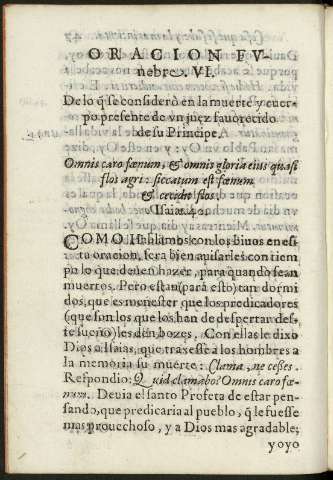 ORACION FV-
nebre. VI.
De lo q̃ se considerò en la muerte y cuer-
po presente de vn juez fauorecido
de su Principe.
Omnis caro fœnum, & omnis gloria eius quasi
flos agri: siccatum est fœnum
& cecidit flos.
Isaiæ. 40.
COMO Hablamos con los biuos en es-
ta oracion, sera bien auisarles con tiem
po lo que deuen hazer, para quando sean
muertos. Pero estan (para esto) tan dormi
dos, que es menester que los predicadores
(que son los que los han de despertar des-
te sueño) les den bozes. Con ellas le dixo
Dios a Isaias, que traxesse a los hombres a
la memoria su muerte: Clama, ne cesses.
Respondio: Quid clamabo? Omnis caro fœ-
num. Deuia el santo Profeta de estar pen-
sando, que predicaria al pueblo, q̃ le fuesse
mas prouechoso, y a Dios mas agradable;
yo yo